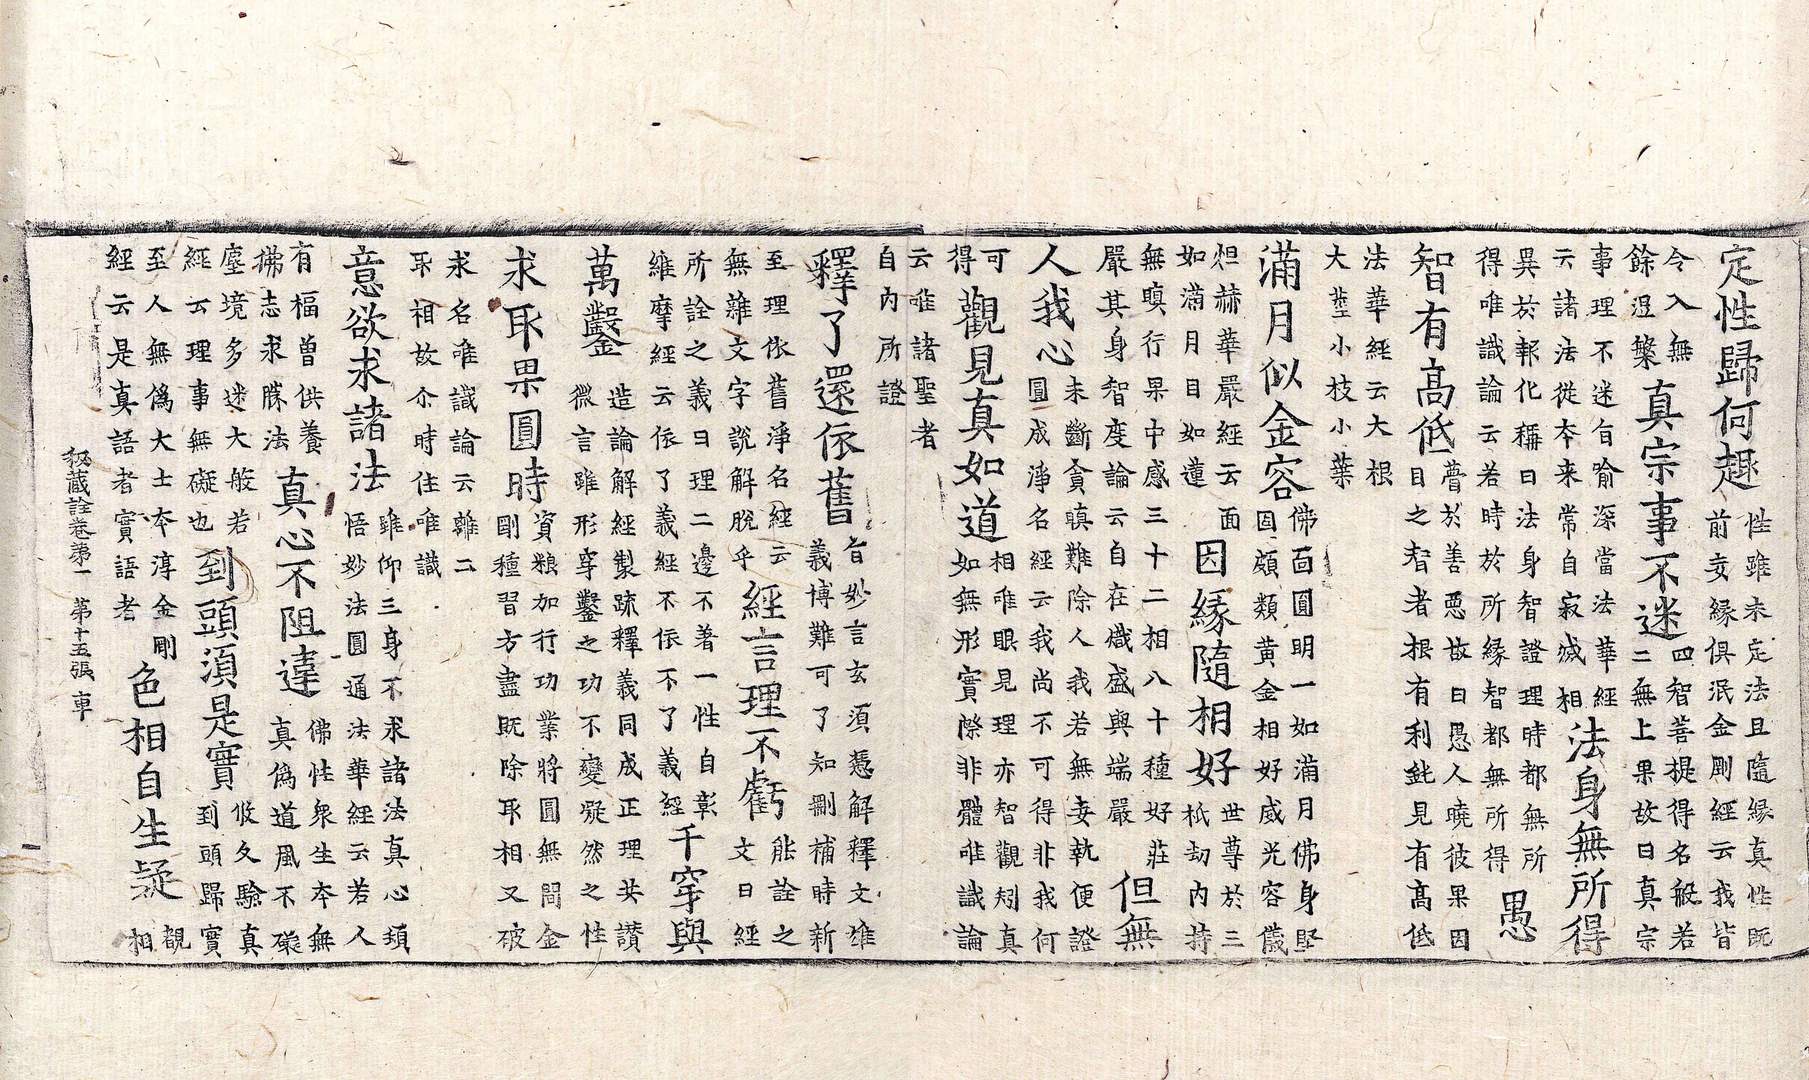 定性歸何趣
性雖未定法且隨緣真性既
前妄緣俱泯金剛經云我皆
令入無
餘涅槃
真宗事不迷
四智菩提得名般若
二無上果故曰真宗
事理不迷旨喻深當法華經
云諸法從本来常自寂滅相
法身無所得
異於報化稱曰法身智證理時都無所
得唯識論云若時於所緣智都無所得
愚
智有高低
瞢於善惡故曰愚人曉彼果因
目之智者根有利鈍見有高低
法華經云大根
大莖小枝小葉
滿月似金容
佛面圓明一如滿月佛身堅
固頗類黄金相好威光容儀
烜赫華嚴經云面
如滿月目如蓮
因緣隨相好
世尊於三
祇劫内持
無瞋行果中感三十二相八十種好莊
嚴其身智度論云自在熾盛與端嚴
但無
人我心
未斷貪瞋難除人我若無妄執便證
圓成淨名經云我尚不可得非我何
可
得
觀見真如道
相唯眼見理亦智觀剋真
如無形實際非體唯識論
云唯諸聖者
自内所證
釋了還依舊
旨妙言玄須憑解釋文雄
義博難可了知刪補時新
至理依舊淨名經云
無離文字說解脫乎
經言理不虧
能詮之
文曰經
所詮之義曰理二邊不著一性自彰
維摩經云依了義經不依不了義經
千穿與
萬鑿
造論解經製疏釋義同成正理共讃
微言雖形穿鑿之功不變凝然之性
求取果圓時
資粮加行功業將圓無間金
剛種習方盡既除取相又破
求名唯識論云離二
取相故尒時住唯識
意欲求諸法
雖仰三身不求諸法真心頊
悟妙法圓通法華經云若人
有福曾供養
佛志求勝法
真心不阻違
佛性衆生本無
真僞道風不礙
塵境多迷大般若
經云理事無礙也
到頭須是實
悠久驗真
到頭歸實
至人無爲大士本淳金剛
經云是真語者實語者
色相自生疑
觀
相
秘藏詮卷第一 第十五張 車